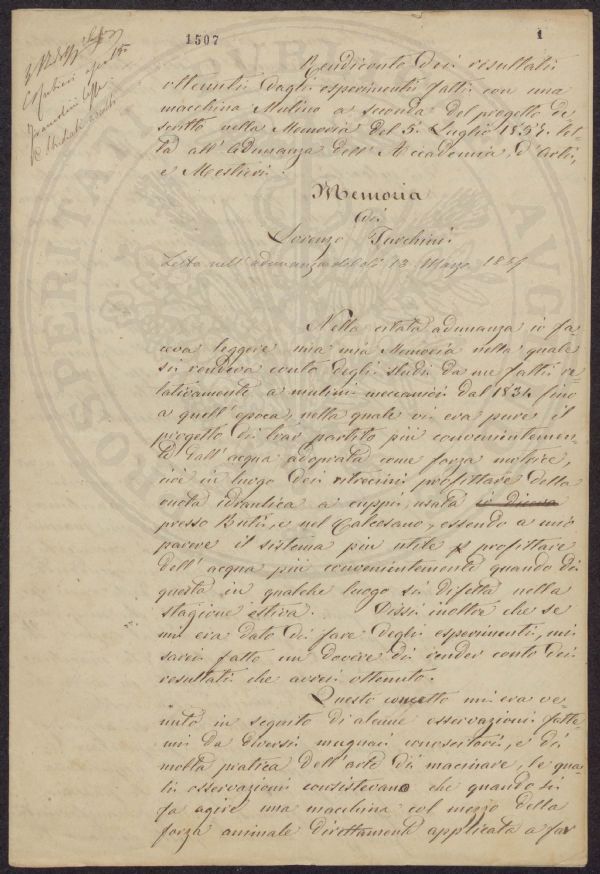 1507
1
Rendiconto dei resultati
ottenuti dagli esperimenti fatti con una
macchina Mulino a seconda del progetto de
scritto nella Memoria del 5. Luglio 1857. let
ta all' Adunanza dell' Accademia, d' Arti,
e Mestieri.
Memoria
di
Lorenzo Turchini
Letta nell' adunanza del dì 13 Marzo
Nella citata adunanza io fa
ceva leggere una mia Memoria nella quale
si rendeva conto degli studi da me fatti re
lativamente a mulini meccanici dal 1834 fino
a quell' epoca, nella quale vi era pure il
progetto di trar partito più convenientemen
te dall' acqua adoprata come forza motrice,
cioè in luogo dei ritrecini profittare della
ruota idraulica a cuppi, usata si diceva
presso Buti, e nel Calcesano, essendo a mio
parere il sistema più utile p profittare
dell' acqua più convenientemente quando di
questa in qualche luogo si difetta nella
stagione estiva. Dissi inoltre che se
mi era dato di fare degli esperimenti, mi
sarei fatto un dovere di render conto dei
resultati che avrei ottenuto.
Questo concetto mi era ve
nuto in seguito di alcune osservazioni fatte
mi da diversi mugnai conoscitori, e di
molta pratica dell' arte di macinare, le qua
li osservazioni consistevano che quando si
fa agire una macchina col mezzo della
forza animale direttamente applicata a far